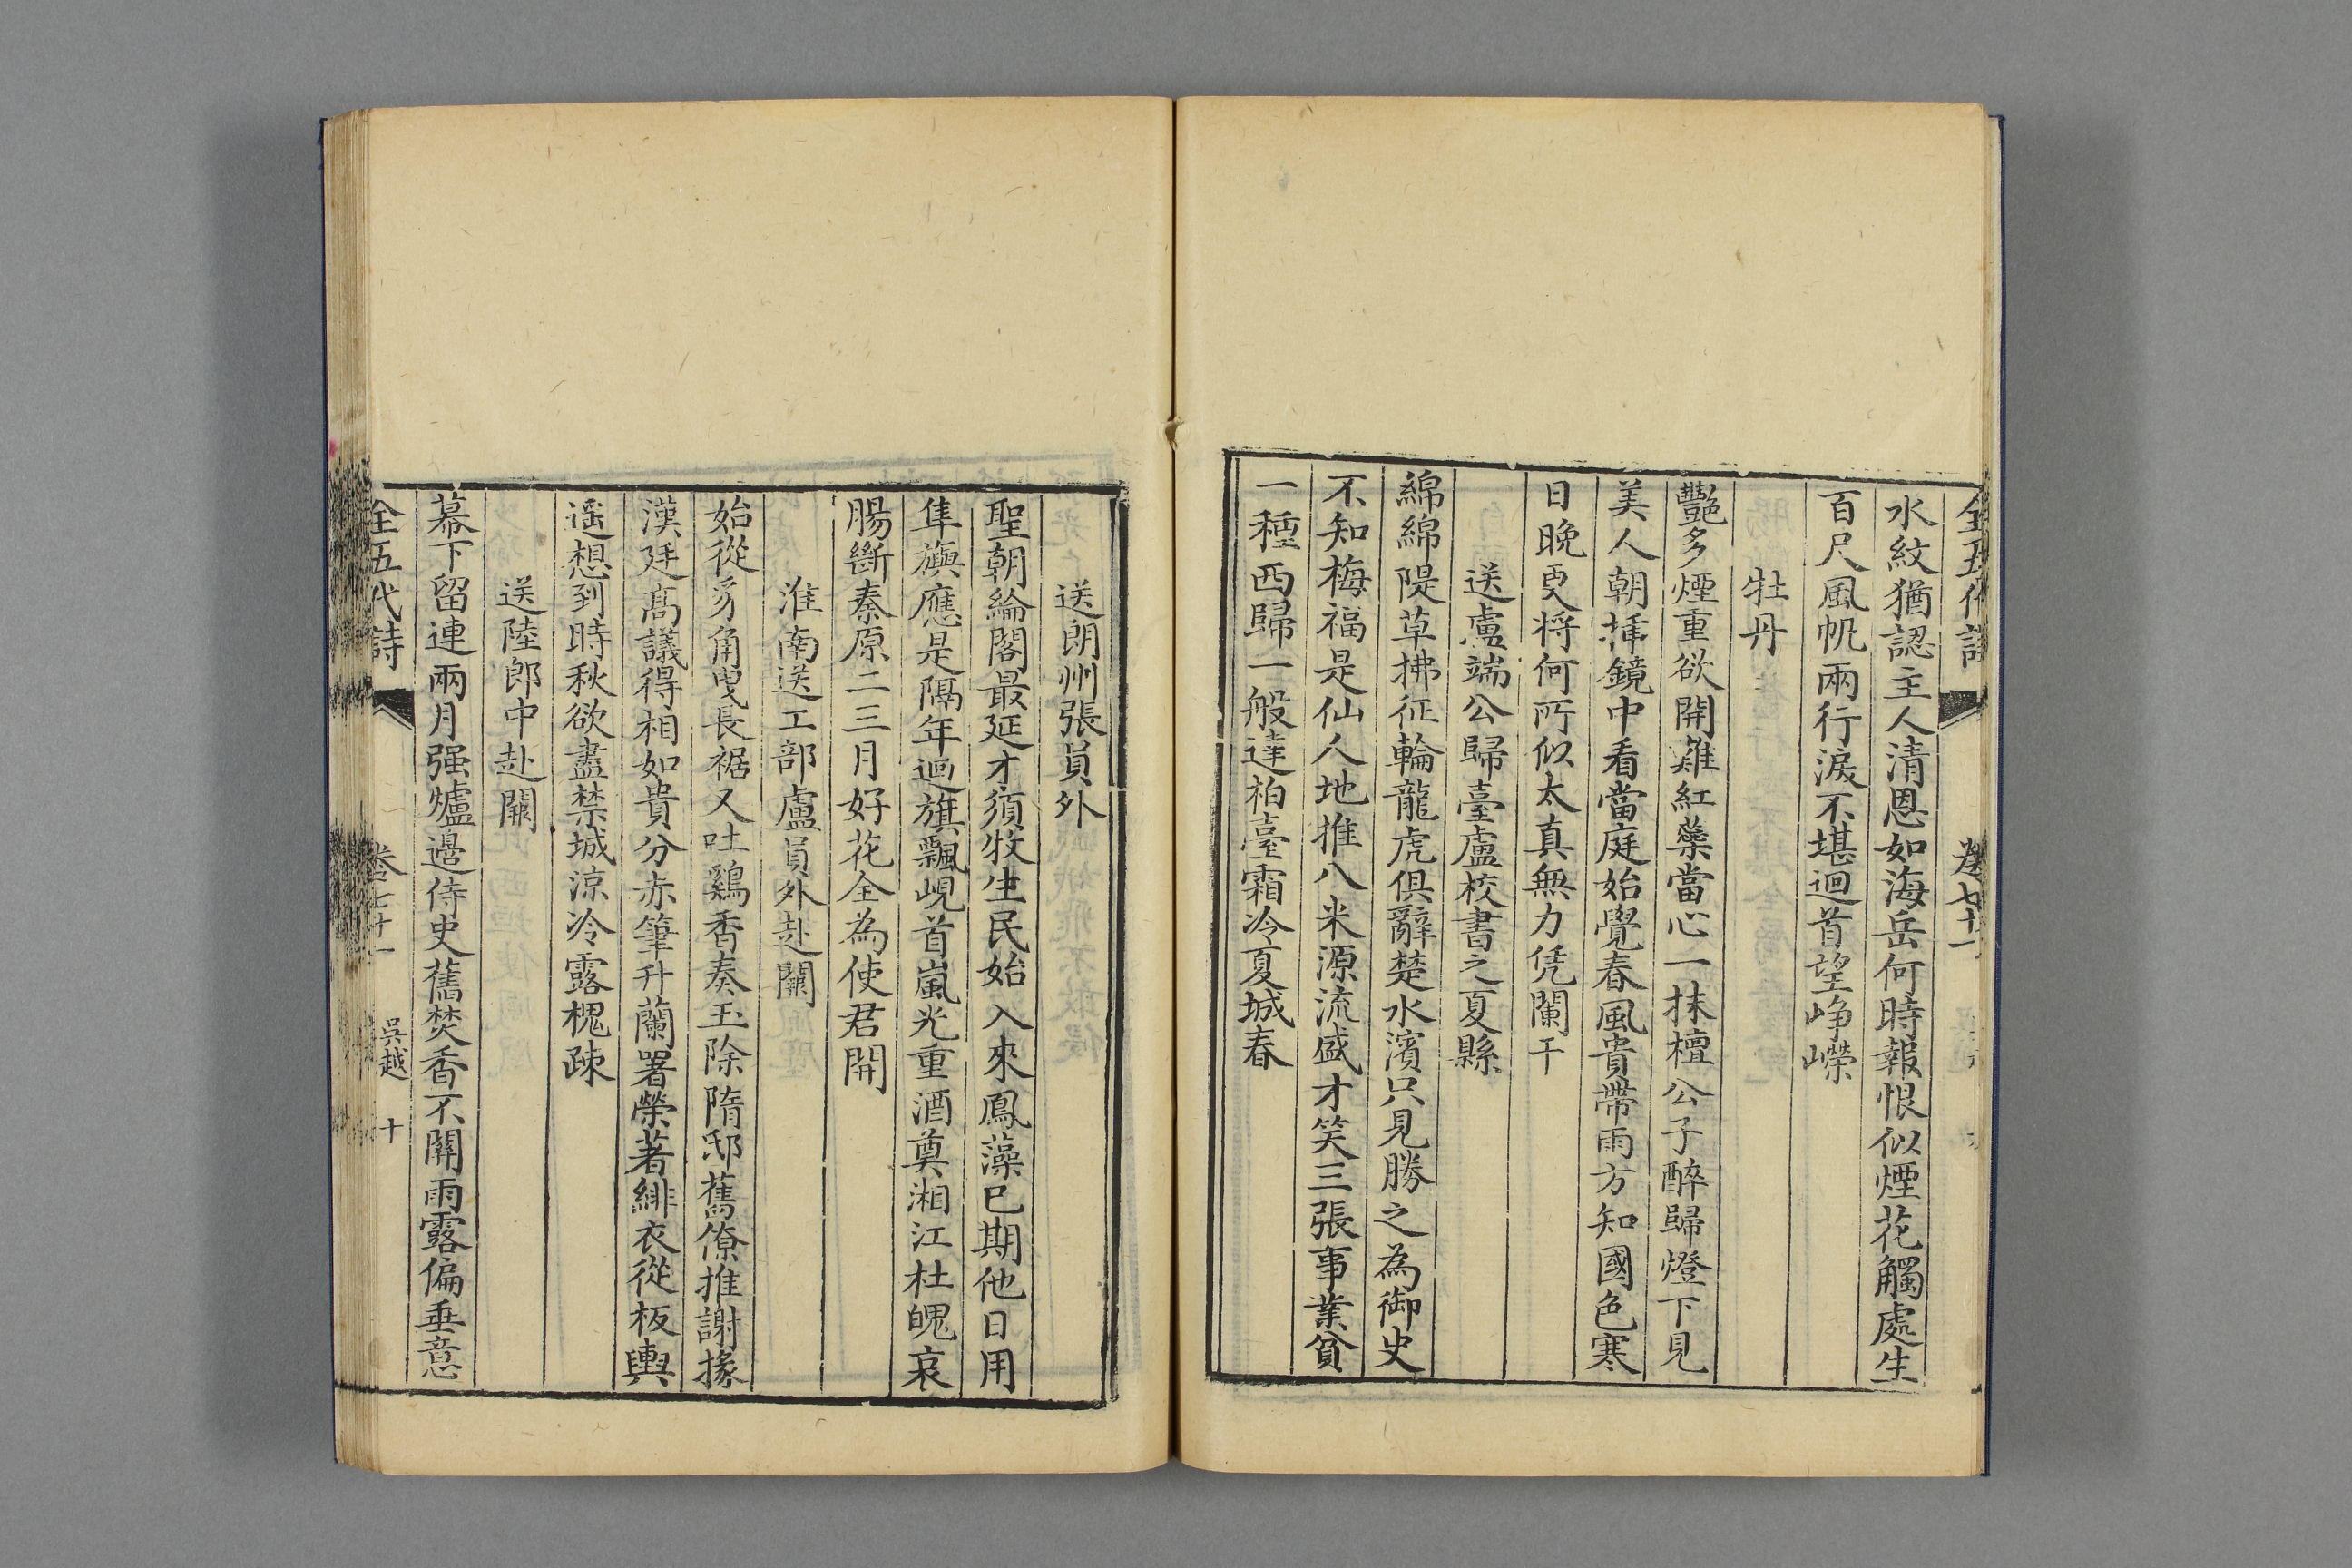 全五代詩 卷七十一
水紋猶認主人清恩如海岳何時報恨似煙花觸處生
百尺風帆兩行淚不堪迴首望崢嶸
牡丹
豔多煙重欲開難紅蘂當心一抹檀公子醉歸燈下見
美人朝揷鏡中看當庭始覺春風貴帶雨方知國色寒
日晚更將何所似太真無力凭闌干
送盧端公歸臺盧校書之夏縣
綿綿隄草拂征輪龍虎俱辭楚水濱只見勝之為御史
不知梅福是仙人地推八米源流盛才笑三張事業貧
一種西歸一般達柏臺霜冷夏城春
送朗州張員外
聖朝綸閣最延才須牧生民始入來鳳藻已期他日用
隼旟應是隔年迴旗飄峴首嵐光重酒奠湘江杜魄哀
腸斷秦原二三月好花全為使君開
淮南送工部盧員外赴闕
始從豸角曳長裾又吐鷄香奏玉除隋邸舊僚推謝掾
漢廷高議得相如貴分赤筆升蘭署榮著緋衣從板輿
遥想到時秋欲盡禁城涼冷露槐疎
送陸郎中赴闕
幕下留連兩月强爐邊侍史舊焚香不關雨露偏垂意
全五代詩 卷七十一 吳越 十